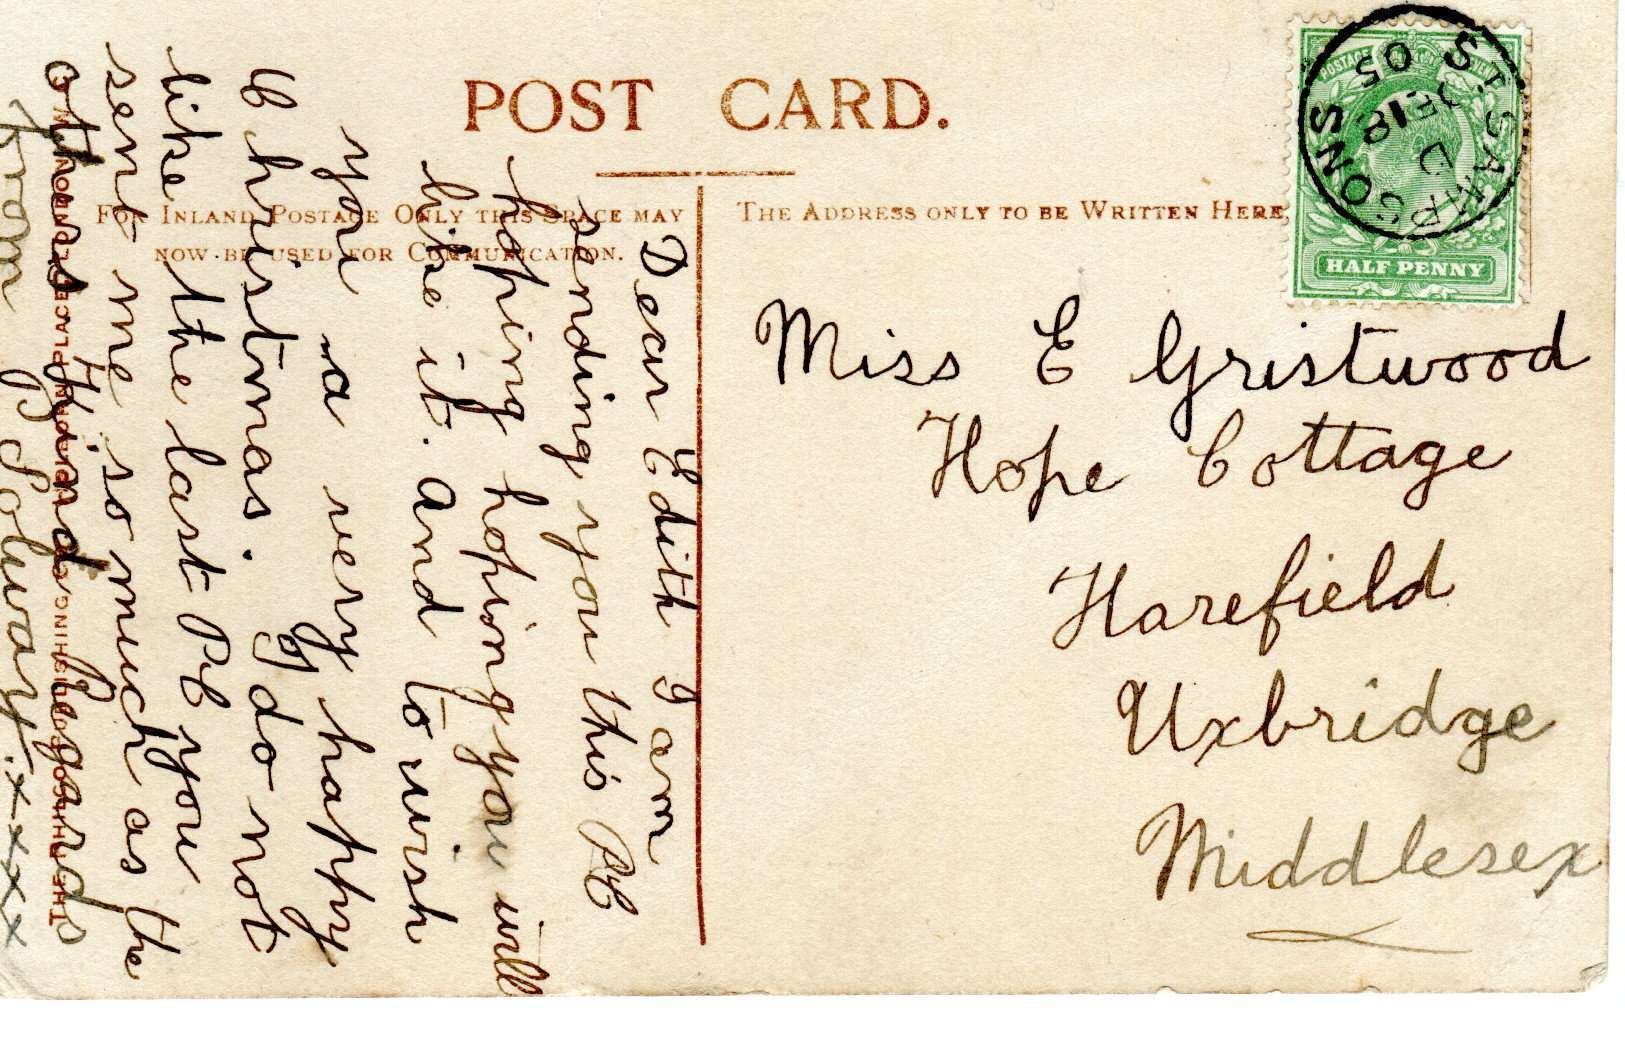 POST CARD.
FOR INLAND POSTAGE ONLY THIS SPACE MAY
NOW BE USED FOR COMMUNICATION.
THE ADDRESS ONLY TO BE WRITTEN HERE,
POSTAGE
HALF PENNY
ST. SAMPSONS
D
DE 18
05
Miss E Gristwood
Hope Cottage
Harefield
Uxbridge
Middlesex
Dear Edith I am
sending you this PC
hoping hoping you will
like it. And to wish
you a very happy
Christmas. I do not
like the last PC you
sent me so much as the
others. Kind Regards
from B Solway. x x x x